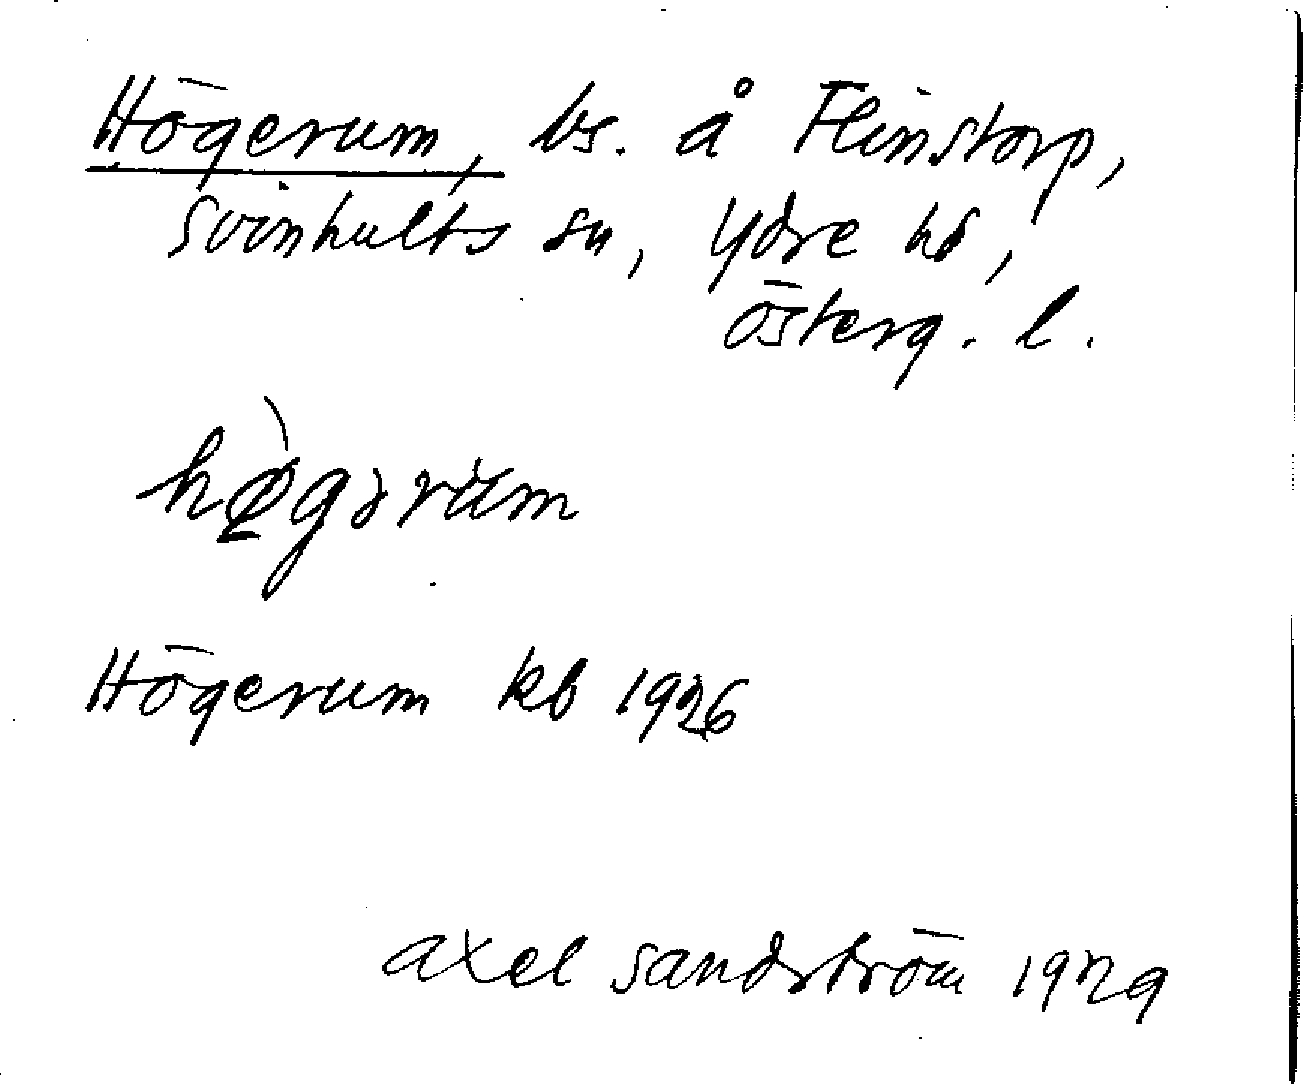 Högerum, bs. å Flinstorp,
Svinhults sn, Ydre hd,
Österg. l.
hø̀gərum
Högerum kb 1926
Axel Sandström 1929